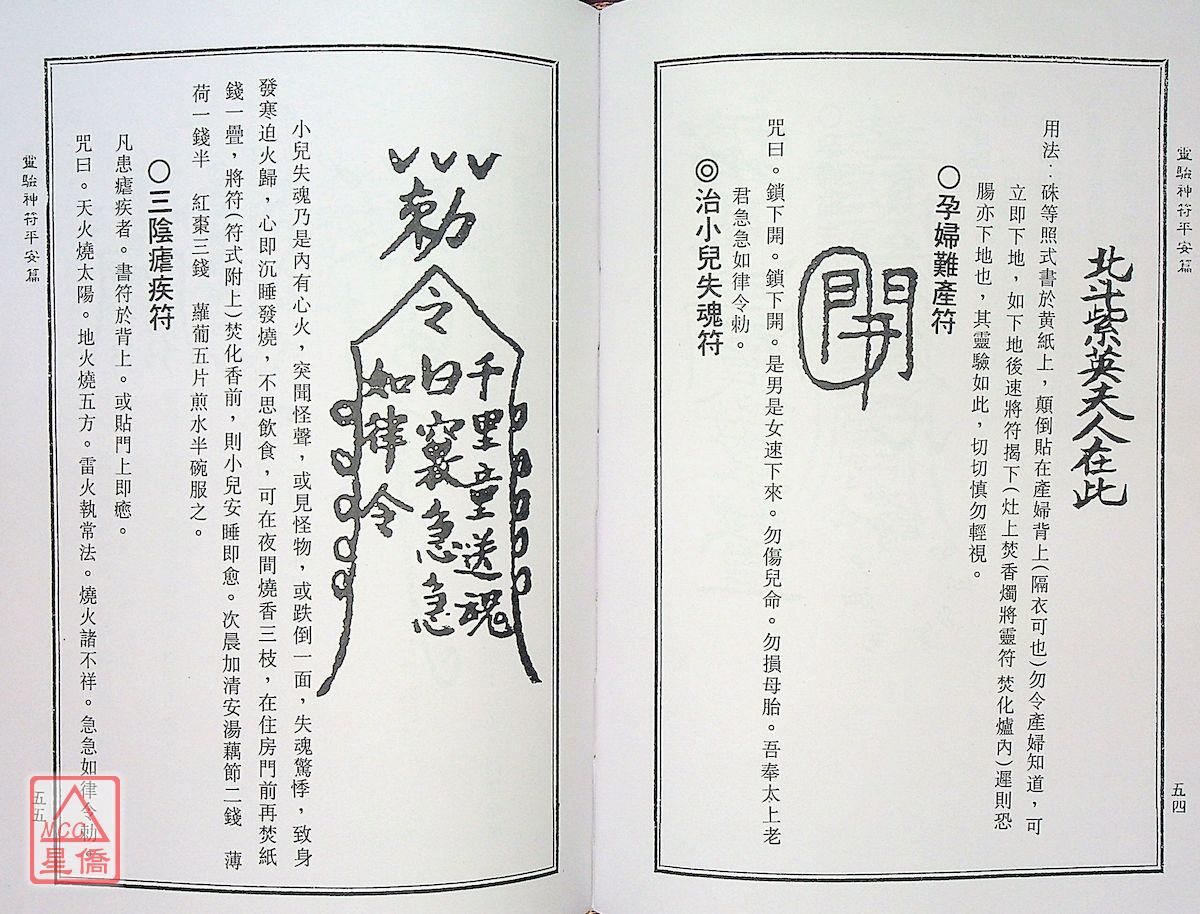 靈驗神符平安篇
五四
北斗紫英夫人在此
用法：硃等照式書於黃紙上，顛倒貼在產婦背上(隔衣可也)勿令產婦知道，可
立即下地，如下地後速將符揭下(灶上焚香燭將靈符 焚化爐內)遲則恐
腸亦下地也，其靈驗如此，切切慎勿輕視。
○孕婦難產符
咒曰。鎖下開。鎖下開。是男是女速下來。勿傷兒命。勿損母胎。吾奉太上老
君急急如律令勅。
◎治小兒失魂符
勅令
千里童送魂
急急
如律令
小兒失魂乃是內有心火，突聞怪聲，或見怪物，或跌倒一面，失魂驚悸，致身
發寒迫火歸，心即沉睡發燒，不思飲食，可在夜間燒香三枝，在住房門前再焚紙
錢一疊，將符(符式附上)焚化香前，則小兒安睡即愈。次晨加清安湯藕節二錢 薄
荷一錢半 紅棗三錢 蘿葡五片煎水半碗服之。
○三陰瘧疾符
凡患瘧疾者。書符於背上。或貼門上即癒。
咒曰。天火燒太陽。地火燒五方。雷火執常法。燒火諸不祥。急急如律令勅。
靈驗神符平安篇
五五
MCC
星僑